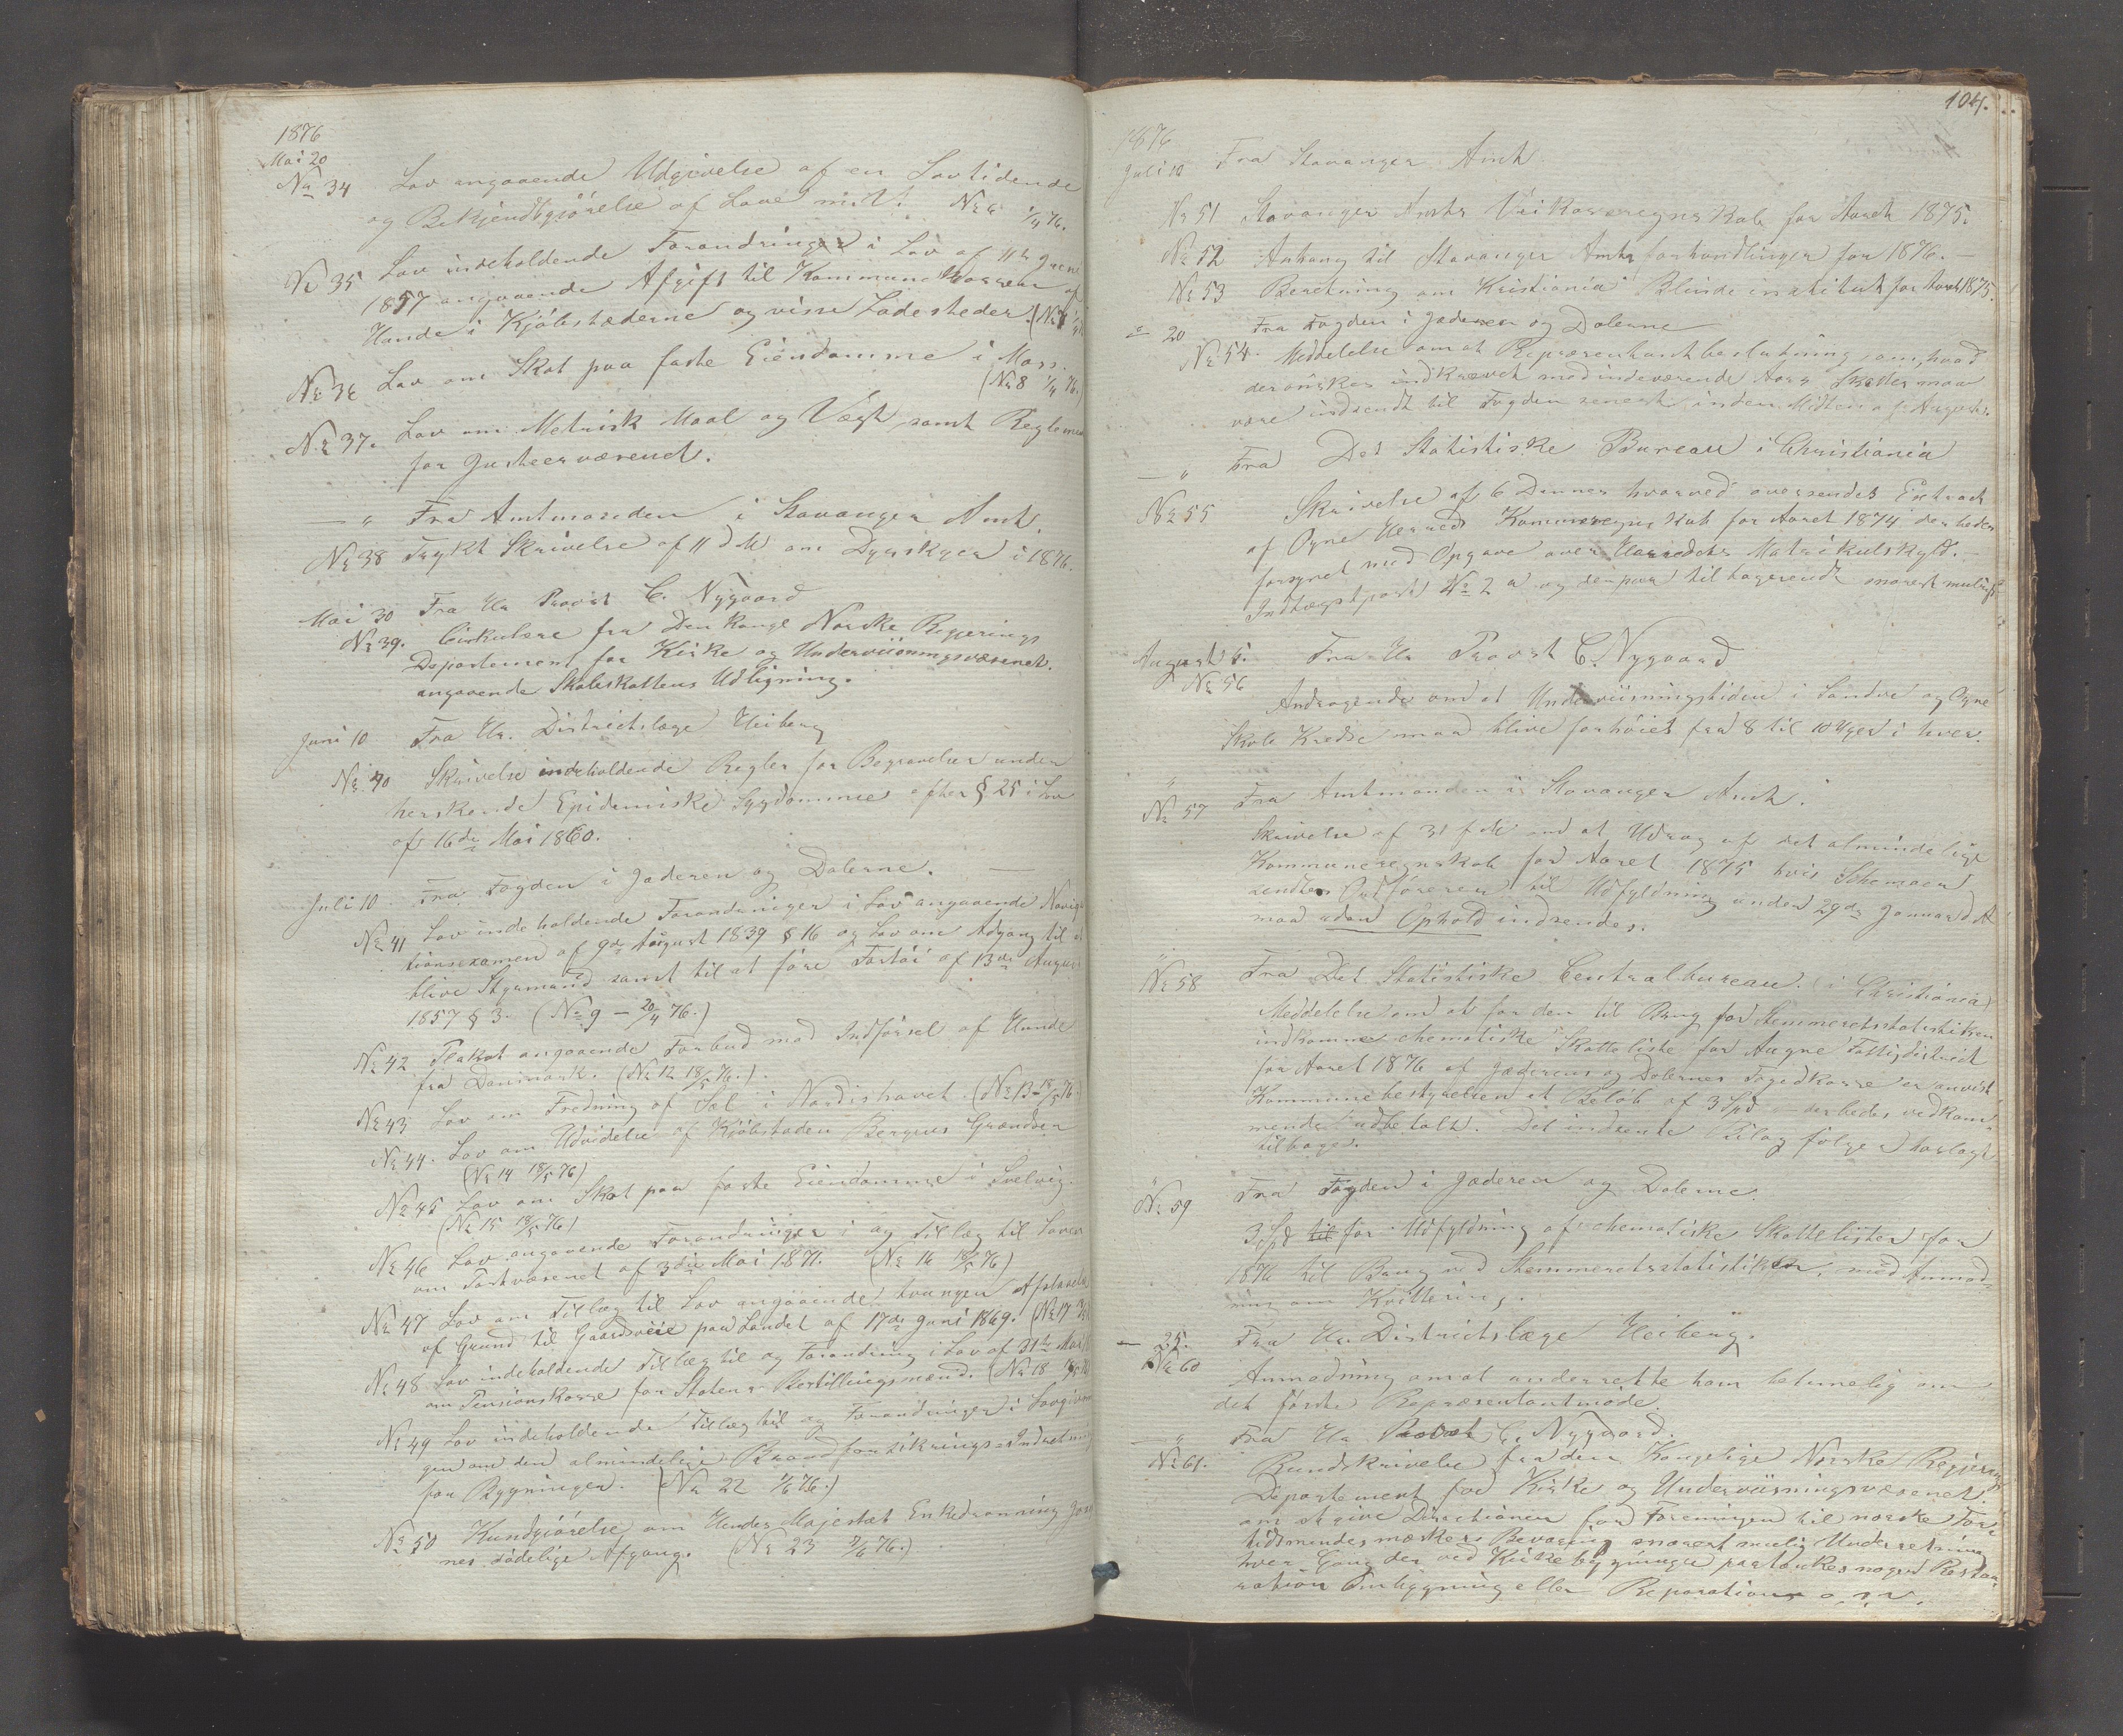 1876
Mai 20
No 34 Lov angaaende Udgivelse af en Lovtidende
og Bekjendtgjørelse af Love m. v. No 6 1/4 76.
No 35 Lov indeholdende Forandringer i Lov af 11te Juni
1857 angaaende Afgift til Kommunekassen af
Hunde i Kjøbstæderne og visse Ladesteder. (No 7
No 36 Lov om Skat paa faste Eiendomme i Moss.
(No 8 1/4 76.)
No 37. Lov om Metrisk Maal og Vægt samt Reglement
for Justeervæsenet.
— " Fra Amtmanden i Stavanger Amt.
No 38 Trykt Skrivelse af 11 d M om Dyrskuer i 1876.
Mai 30 Fra Hr Provst C. Nygaard
No 39. Cirkulære fra Den Kongl Norske Regjerings
Departement for Kirke og Underviisningsvæsenet.
angaaende Skoleskattens Udligning.
Juni 10 Fra Hr. Distriktslæge Heiberg
No 40 Skrivelse indeholdende Regler for Begravelser under
herskende Epidemiske Sygdomme efter § 25 i Lov
af 16de Mai 1860.
Juli 10 Fra Fogden i Jæderen og Dalerne. —
No 41 Lov indeholdende Forandringer i Lov angaaende Naviga
tionsexamen af 9de August 1839 § 16 og Lov om Adgang til at
blive Styrmand samt til at føre Fartøi af 13de August
1857 § 3. (No 9 — 20/4 76.)
No 42 Plakat angaaende Forbud mod Indførsel af Hunde
fra Danmark. (No 12 18/5 76.)
No 43 Lov om Fredning af Sæl i Nordishavet (No 13 18/5 76.)
No 44. Lov om Udvidelse af Kjøbstaden Bergens Grændser
(No 14 18/5 76)
No 45 Lov om Skat paa faste Eiendomme i Svelvig.
(No 15 18/5 76)
No 46 Lov angaaende Forandringer i og Tillæg til Loven
om Postvæsenet af 3die Mai 1871. (No 16 18/5 76)
No 47 Lov om Tillæg til Lov angaaende tvungen Afstaaelse
af Grund til Gaardsveie paa Landet af 17de Juni 1869. (No 17
No 48 Lov indeholdende Tillæg til og Forandring i Lov af 31te Mai
om Pensionskasse for Statens Bestillingsmænd. (No 18
No 49 Lov indeholdende Tillæg til og Forandringer i Lovgivnin
gen om den almindelige Brandforsikrings-Indretning
for Bygninger. (No 22 1/6 76.)
No 50 Kundgjørelse om Hendes Majestæt Enkedronning Jose
nes dødelige Afgang. (No 23 9/6 76.)
104.
1876
Juli 10 Fra Stavanger Amt
No 51 Stavanger Amts Veikasseregnskab for Aaret 1875.
No 52 Anhang til Stavanger Amtsforhandlinger for 1876. —
No 53 Beretning om Kristiania Blindeinstitut for Aaret 1875.
" 20 Fra Fogden i Jæderen og Dalerne
No 54. Meddelelse om at Repræsentantbeslutning om, hvad
der ønskes indkrævet med indeværende Aars Skatter maa
være indsendt til Fogden senest inden Midten af August.
— " Fra Det Statistiske Bureau i Christiania
No 55 Skrivelse af 6 Dennes hvorved oversendes Extract
af Ogne Herreds Kommuneregnskab for Aaret 1874 der bedes
forsynet med Opgave over Herredets Matrikulskyld. —
Indtægtspost No 2 a og derpaa tilbagesendt snarest muligt
August 5. Fra Hr Provst C. Nygaard
No 56
Andragende om at Underviisningstiden i Sandve og Ogne
Skole Kredse maa blive forhøiet fra 8 til 10 Uger i hver.
"
No 57 Fra Amtmanden i Stavanger Amt.
Skrivelse af 31 f M om at Udtog af det almindelige
Kommuneregnskab for Aaret 1875 hvis Schemaer
sendtes Ordføreren til Udfyldning under 29de Januar d. A
maa uden Ophold indsendes.
"
No 58 Fra Det Statistiske Centralbureau. (i Christiania)
Meddelelse om at for den til Brug for Stemmeretsstatistiken
indkomne chematiske Skatteliste for Augne Fattigdistrict
for Aaret 1876 af Jæderens og Dalernes Fogedkasse er anvist
Kommunebestyrelsen et Beløb af 3 Spd — der bedes vedkom-
mende udbetalt. Det indsente Bilag følger hoslagt
tilbage.
"
No 59 Fra Fogden i Jæderen og Dalerne.
3 Spd til for Udfyldning af chematiske Skattelister for
1876 til Brug ved Stemmeretsstatistiken, med Anmod-
ning om Kvittering.
— 25. Fra Hr. Districtslæge Heiberg.
No 60
Anmodning om at underrette ham betimelig om
det første Repræsentantmøde.
— " Fra Hr Provst C. Nygaard.
No 61. Rundskrivelse fra den Kongelige Norske Regjerings
Departement for Kirke og Underviisningsvæsenet.
om at give Directionen for Foreningen til norske For-
tidsmindesmærkers Bevaring snarest mulig Underretning
hver Gang der ved Kirkebygninger paatænkes nogen Restau-
ration Ombygning eller Reparation o. s. v.